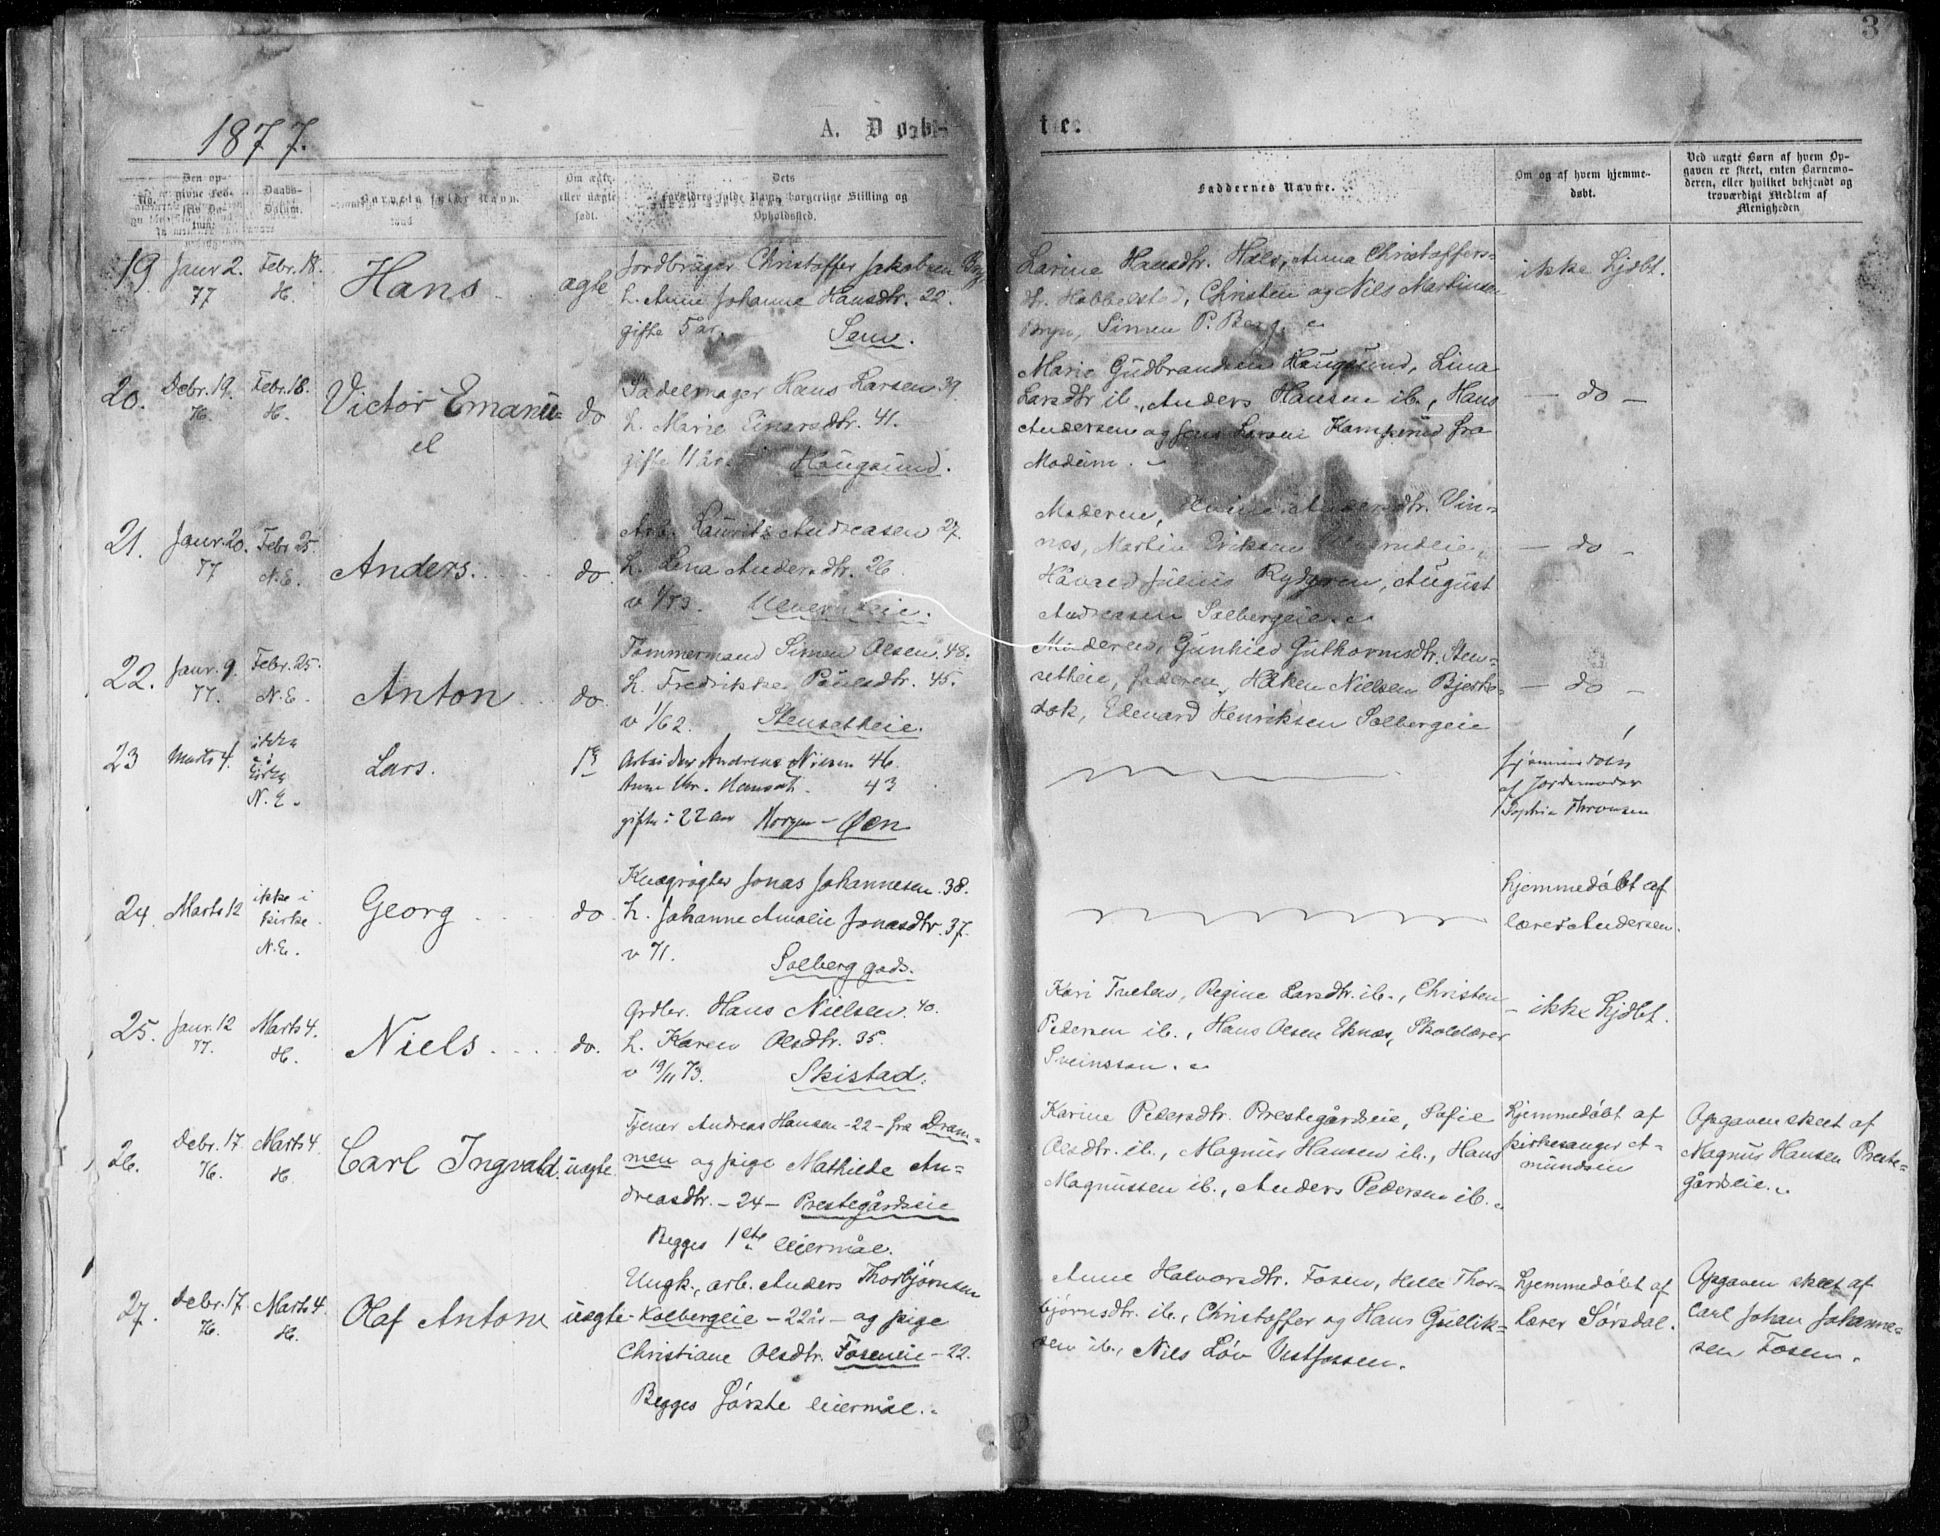 3
1877.
A. Døbte.
No.
Den opgivne Fødsels Datum.
Daabs-
Datum.
Barnets fulde Navn.
Om ægte
eller uægte
født.
Dets
Forældres fulde Navn, borgerlige Stilling og
Opholdssted.
Faddernes Navne.
Om og af hvem hjemme-
døbt.
Ved uægte Børn af hvem Op-
gaven er skeet, enten Barnemo-
deren, eller hvilket bekjendt og
troværdigt Medlem af
Menigheden
19
Janr 2.
77
Febr. 18.
H.
Hans
ægte
Jordbruger Christoffer Jakobsen
h. Anne Johanne Hansdtr. 22.
gifte 5 år.
Sem.
Larine Hansdtr. Hals, Anna Christoffers-
dtr. Hobbelstad, Christen og Nils Martinsen
Bryn, Simen P. Berg.
ikke hjdbt.
20.
Debr. 19.
76.
Febr. 18.
H.
Victor Emanu-
el
do
Sadelmager Hans Larsen 39
h. Marie Einarsdtr. 41.
gifte 11 år.
Hougsund.
Marie Gudbrandsen Hougsund, Lina
Larsdtr ib., Anders Hansen ib., Hans
Andersen og Jens Larsen Kamperud fra
Modum.
— do —
21.
Janr. 20.
77
Febr 25.
N.E.
Anders.
do.
Arb. Lauritz Andreasen 27.
h. Lena Andersdtr. 26
v 1/73.
Ulverudeie.
Moderen, Andersdtr. Vin-
næs, Martin Eriksen
Håvald Julius Rydgren, August
Andreasen Solbergeie
— do —
22.
Janr. 9.
77.
Febr. 25.
N.E.
Anton
do.
Tømmermand Simen Olsen. 48.
h. Fredrikke Paulsdtr. 45.
v 1/62.
Stensetheie.
Moderen, Gunhild Guthormsdtr. Sten-
setheie, faderen, Håken Nielsen Bjerke-
dok, Edevard Henriksen Solbergeie
— do —
23
Marts 4.
ikke
i
kirke
N.E.
Lars.
Arbeider Andreas Nilsen 46.
Anne Hansdt. 43
gifte: 22 aar Horgen - Øen
hjemmedøbt
af Jordemoder
Sophie Thronsen
24.
Marts 12
ikke i
kirke.
N.E.
Georg
do.
Kvægrøgter Jonas Johannesen. 38.
h. Johanne Amalie Jonasdtr. 37.
v 71.
Solberg gods.
hjemmedøbt af
lærer Andersen.
25.
Janr. 12
77.
Marts 4.
H.
Niels
do.
Grdbr. Hans Nielsen. 40.
h. Karen Olsdtr. 35.
v 19/11 73.
Skistad.
Kari Tveten, Regine Larsdtr. ib., Christen
Pedersen ib., Hans Olsen Eknæs, Skolelærer
Sveinsson.
— ikke hjdbt.
26.
Debr. 17
76.
Marts 4.
H.
Carl Ingvald.
uægte.
Tjener Andreas Hansen - 22 - fra Dram-
men og pige Mathilde An-
dreasdtr. - 24 - Prestegårdseie
Begges 1ste leiermål.
Karine Pedersdtr. Prestegårdseie, Sofie
Olsdtr. ib., Magnus Hansen ib., Hans
Magnussen ib., Anders Pedersen ib.
hjemmedøbt af
kirkesanger A-
mundsen
Opgaven skeet af
Magnus Hansen Preste-
gårdseie.
27.
Debr. 17
76.
Marts 4.
H.
Olaf Anton
uægte
Ungk., arb. Anders Thorbjørnsen
Kolbergeie - 22 år - og pige
Christiane Olsdtr. Foseneie - 22.
Begges første leiermål.
Anne Halvorsdtr. Fosen, Helle Thor-
bjørnsdtr. ib., Christoffer og Hans Gullik-
sen ib., Nils Løv Vestfossen.
hjemmedøbt af
lærer Sørsdal.
Opgaven skeet af
Carl Johan Johanne-
sen Fosen.